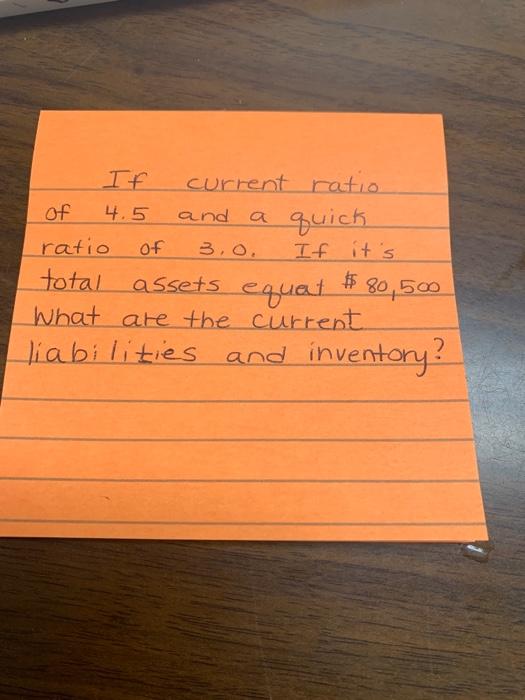 If current ratio
of 4.5 and a quick
ratio of 3.0. If it's
total assets equal $80,500
What are the current
liabilities and inventory?